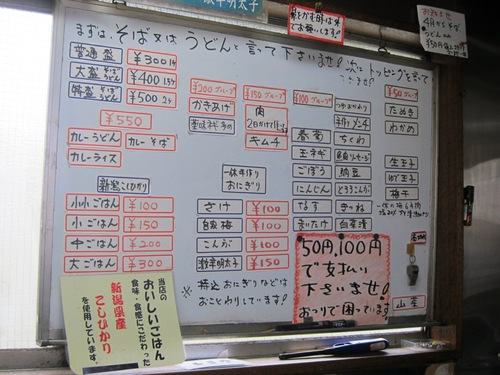 まずは、そば又はうどんと言って下さいませ!次に
トッピングを言って
普通盛 ¥300
大盛 そば うどん ¥400
特盛 そば うどん ¥500
¥550
カレーうどん カレーそば
カレーライス
¥200グループ
かきあげ
¥150グループ
肉
キムチ
¥100グループ
春菊
玉ネギ
ごぼう
にんじん
なす
まいたけ
ちくわ
魚肉ソーセージ
納豆
とろろこんぶ
きつね
白菜漬
¥50グループ
たぬき
わかめ
生玉子
ゆで玉子
梅干
山菜
新潟こしひかり
小小ごはん ¥100
小ごはん ¥150
中ごはん ¥200
大ごはん ¥300
一休手作り
おにぎり
さけ ¥100
梅 ¥100
こんぶ ¥100
激辛明太子 ¥150
※持込おにぎりなどは
おことわりしています!
50円,100円
で支払い
下さいませ!
おつりで困っています
当店の
おいしいごはん
食味・食感にこだわった
新潟県産
こしひかり
を使用しています。
辛明太子
お知らせ
4月からそば
うどん